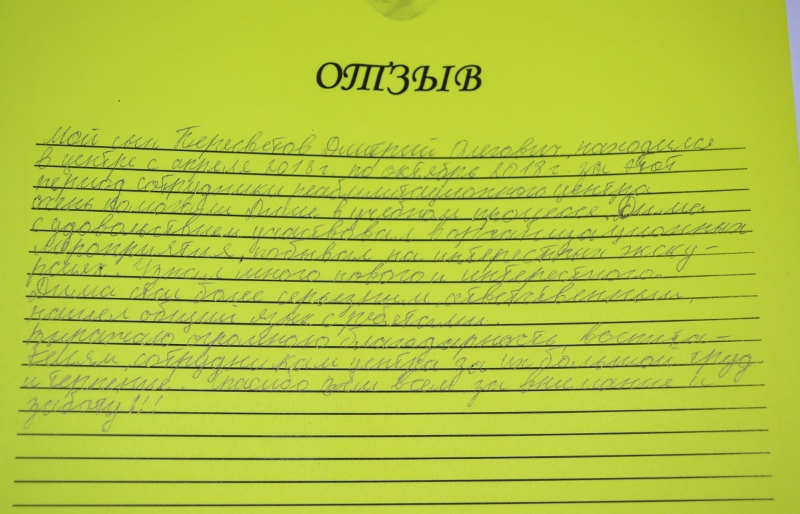 ОТЗЫВ
Мой сын Пересветов Дмитрий Олегович, находился
в центре с апреля 2018 г. по октябрь 2018 г. За этот
период сотрудники реабилитационного центра
очень помогали Диме в учебном процессе. Дима
с удовольствием участвовал в организационных
мероприятия, побывал на интересных экску-
рсиях. Узнал много нового и интересного.
Дима стал более серьезным, ответственным,
нашел общий язык с ребятами.
Выражаю огромного благодарность, воспита-
телям, сотрудникам центра за их большой труд
и терпение. Спасибо вам всем за внимание и
заботу!!!